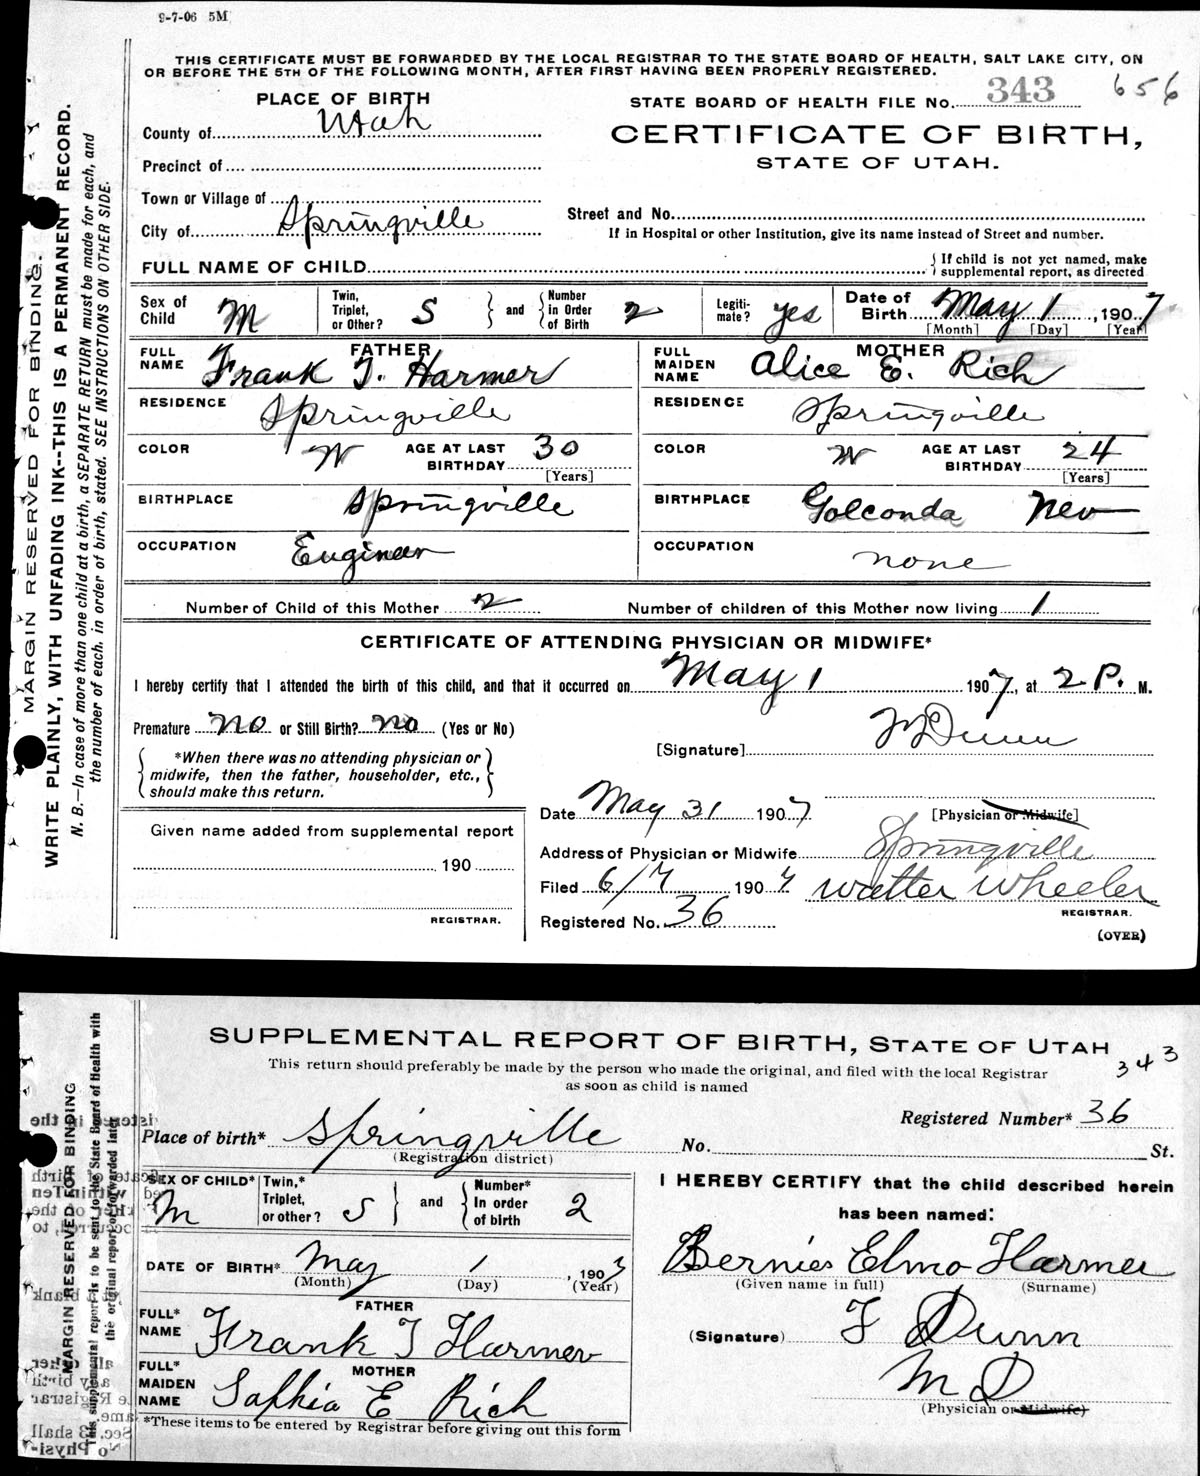 9-7-06 5M
THIS CERTIFICATE MUST BE FORWARDED BY THE LOCAL REGISTRAR TO THE STATE BOARD OF HEALTH, SALT LAKE CITY, ON
OR BEFORE THE 5TH OF THE FOLLOWING MONTH, AFTER FIRST HAVING BEEN PROPERLY REGISTERED.
PLACE OF BIRTH
STATE BOARD OF HEALTH FILE No. 343 656
County of Utah
CERTIFICATE OF BIRTH,
STATE OF UTAH.
Precinct of
Town or Village of
City of Springville
Street and No.
If in Hospital or other Institution, give its name instead of Street and number.
FULL NAME OF CHILD
If child is not yet named, make
supplemental report, as directed
Sex of Child M Twin, Triplet, or Other? S and Number in Order of Birth 2 Legiti-mate? yes Date of Birth May 1, 1907
[Month] [Day] [Year]
FATHER
FULL NAME Frank T. Harmer
MOTHER
FULL MAIDEN NAME Alice E. Rich
RESIDENCE Springville
RESIDENCE Springville
COLOR W AGE AT LAST BIRTHDAY 30 [Years]
COLOR W AGE AT LAST BIRTHDAY 24 [Years]
BIRTHPLACE Springville
BIRTHPLACE Golconda Nev
OCCUPATION Engineer
OCCUPATION none
Number of Child of this Mother 2 Number of children of this Mother now living 1
CERTIFICATE OF ATTENDING PHYSICIAN OR MIDWIFE*
I hereby certify that I attended the birth of this child, and that it occurred on May 1 1907, at 2 P. M.
Premature no or Still Birth? no (Yes or No)
[Signature] Dunn
*When there was no attending physician or
midwife, then the father, householder, etc.,
should make this return.
Date May 31 1907 [Physician or Midwife]
Given name added from supplemental report
Address of Physician or Midwife Springville
190
Filed 6/7 1907 Walter Wheeler
REGISTRAR.
REGISTRAR.
Registered No. 36
(OVER)
MARGIN RESERVED FOR BINDING.
WRITE PLAINLY, WITH UNFADING INK--THIS IS A PERMANENT RECORD.
N. B.—In case of more than one child at a birth, a SEPARATE RETURN must be made for each, and
the number of each. in order of birth, stated. SEE INSTRUCTIONS ON OTHER SIDE.
SUPPLEMENTAL REPORT OF BIRTH, STATE OF UTAH
This return should preferably be made by the person who made the original, and filed with the local Registrar
as soon as child is named
343
Registered Number* 36
Place of birth* Springville No. St.
(Registration district)
SEX OF CHILD* M Twin,* Triplet, or other? S and Number* In order of birth 2
I HEREBY CERTIFY that the child described herein
has been named:
DATE OF BIRTH* May 1, 190
(Month) (Day) (Year)
Elmo Harmer
(Given name in full) (Surname)
FATHER
FULL* NAME Frank T Harmer
(Signature) F Dunn
MD
(Physician or Midwife)
MOTHER
FULL* MAIDEN NAME Sophia E Rich
*These items to be entered by Registrar before giving out this form
MARGIN RESERVED FOR BINDING
This supplemental report is to be sent to the State Board of Health with
the original report or forwarded later